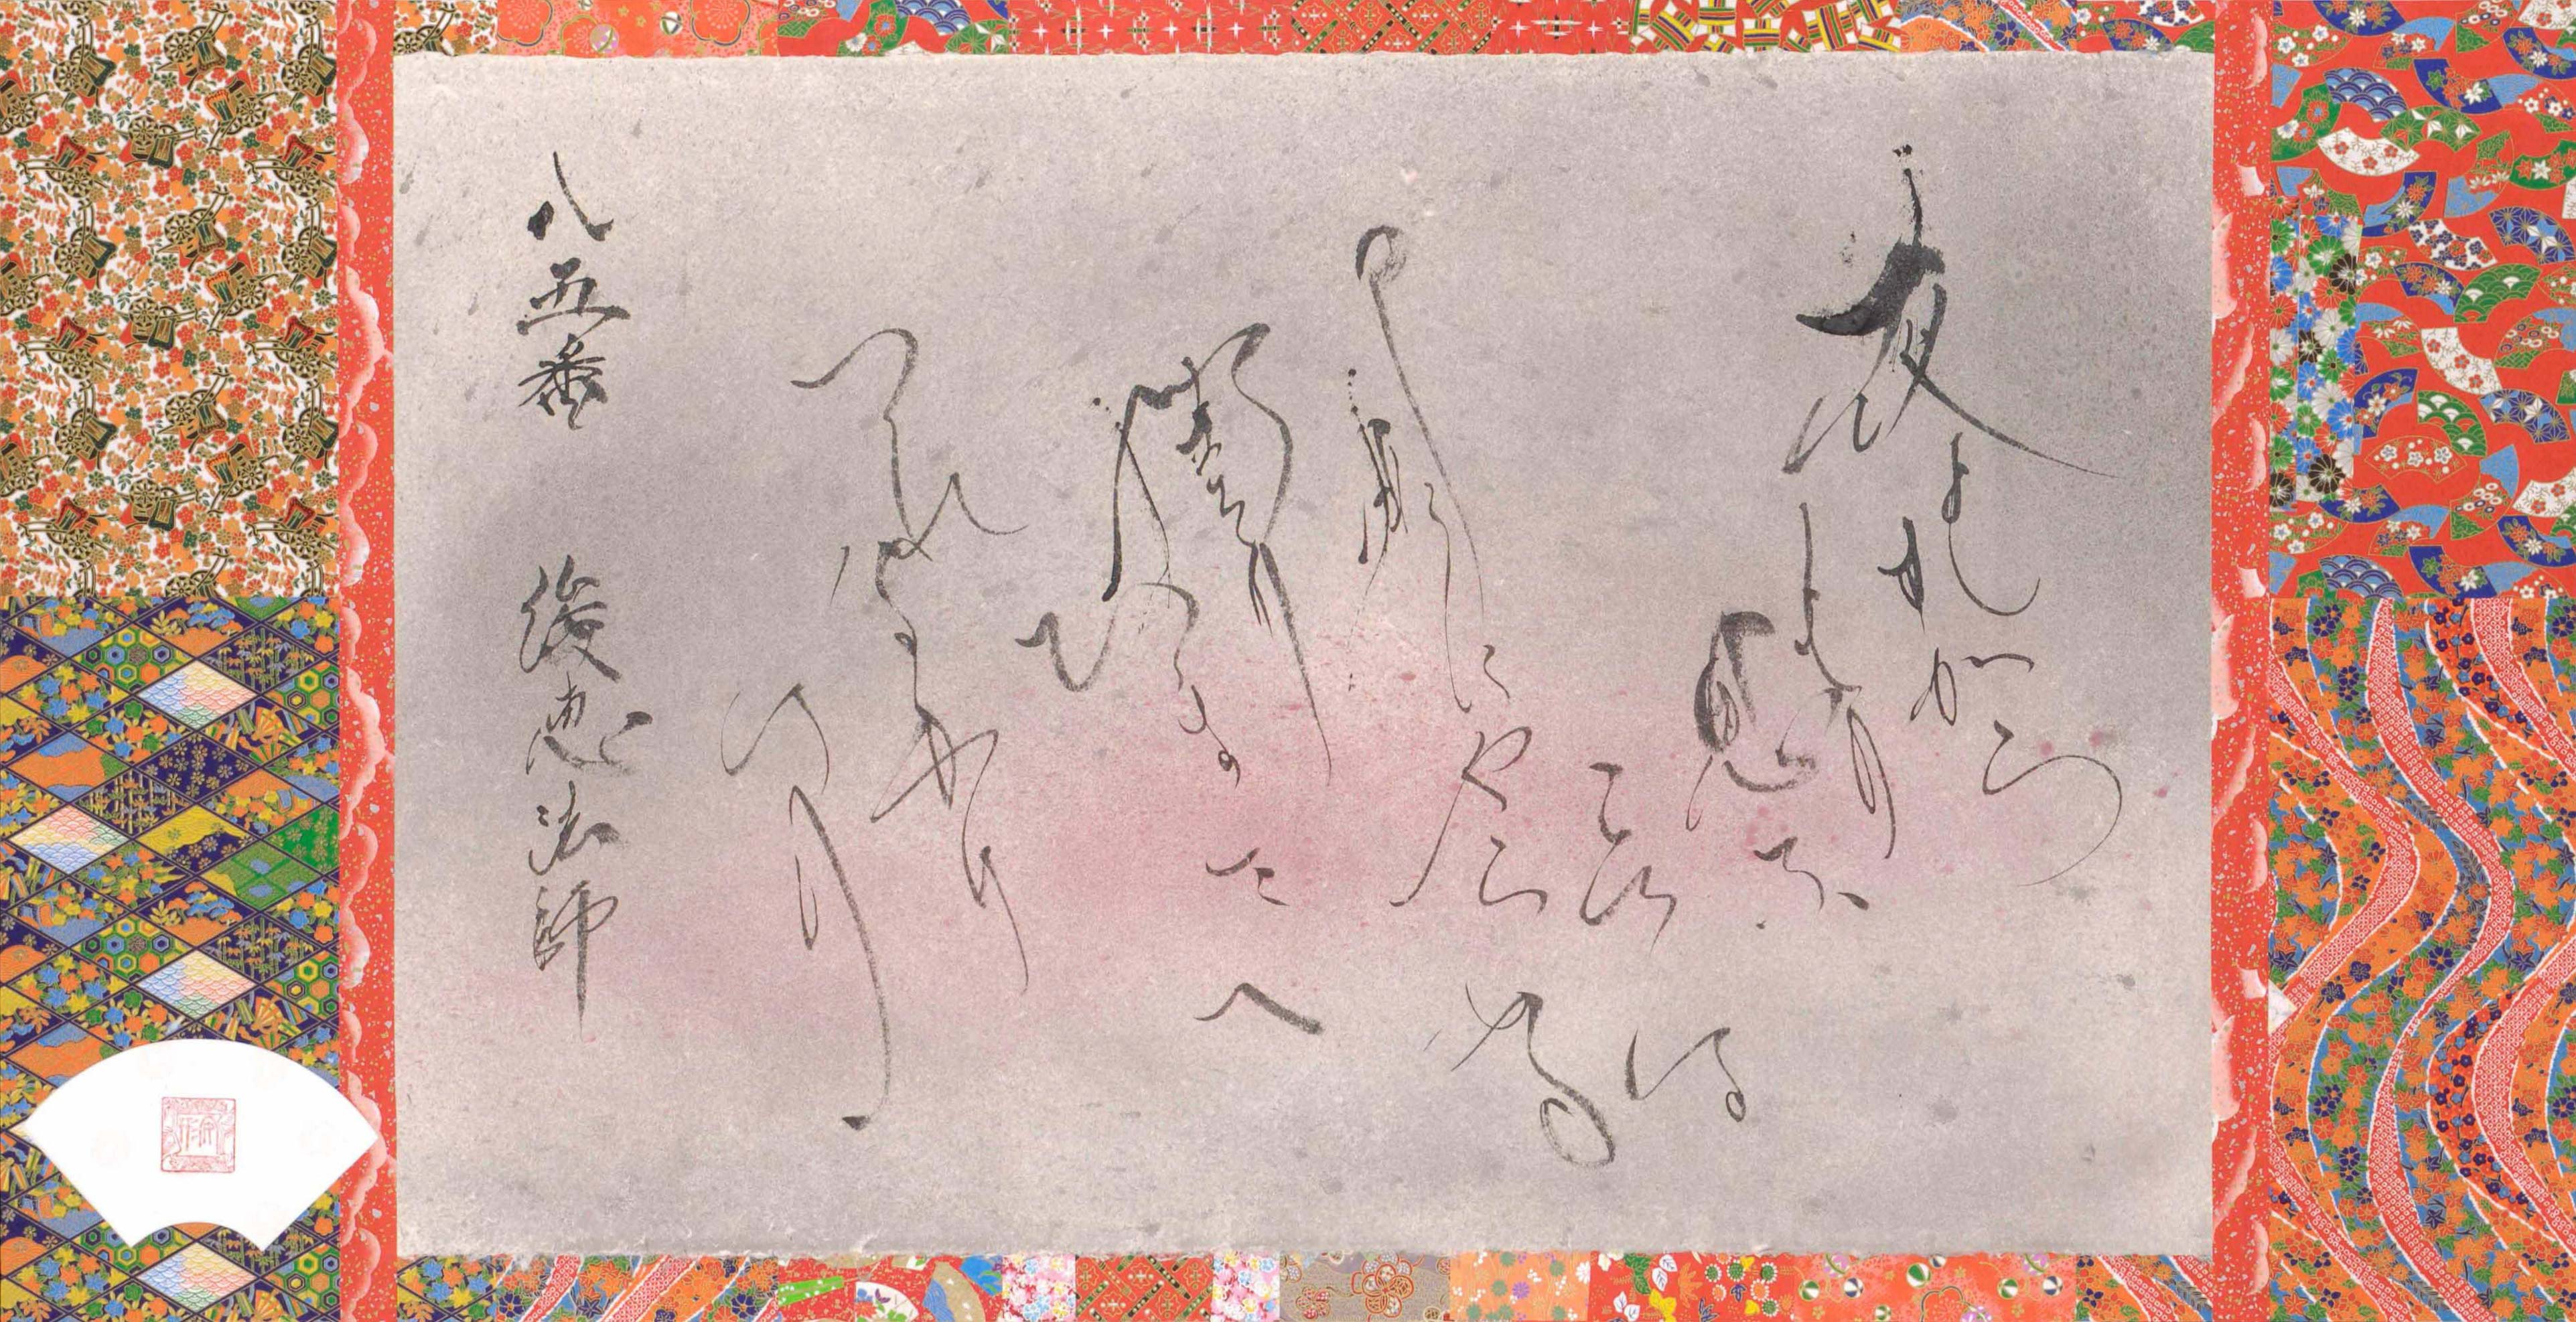 夜もすがら
もの思ふころは
明けやらぬ
閨のひまさへ
つれなかりけり
八五番 俊恵法師